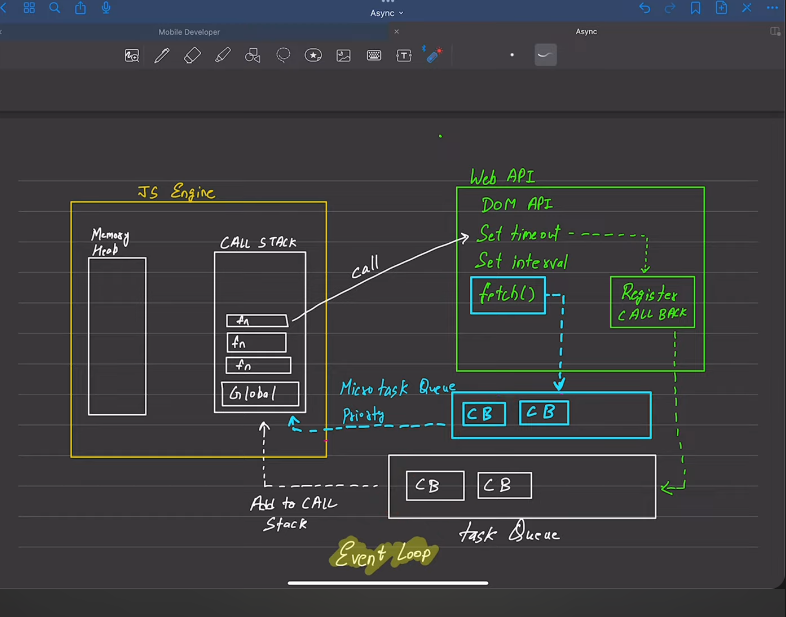 Async
Mobile Developer
Async
JS Engine
Memory
Heab
CALL STACK
fn
fn
fn
Global
call
Web API
DOM API
Set timeout
Set interval
fetch()
Register
CALL BACK
Microtask Queue
Priority
CB CB
CB CB
Add to CALL
Stack
task Queue
Event Loop